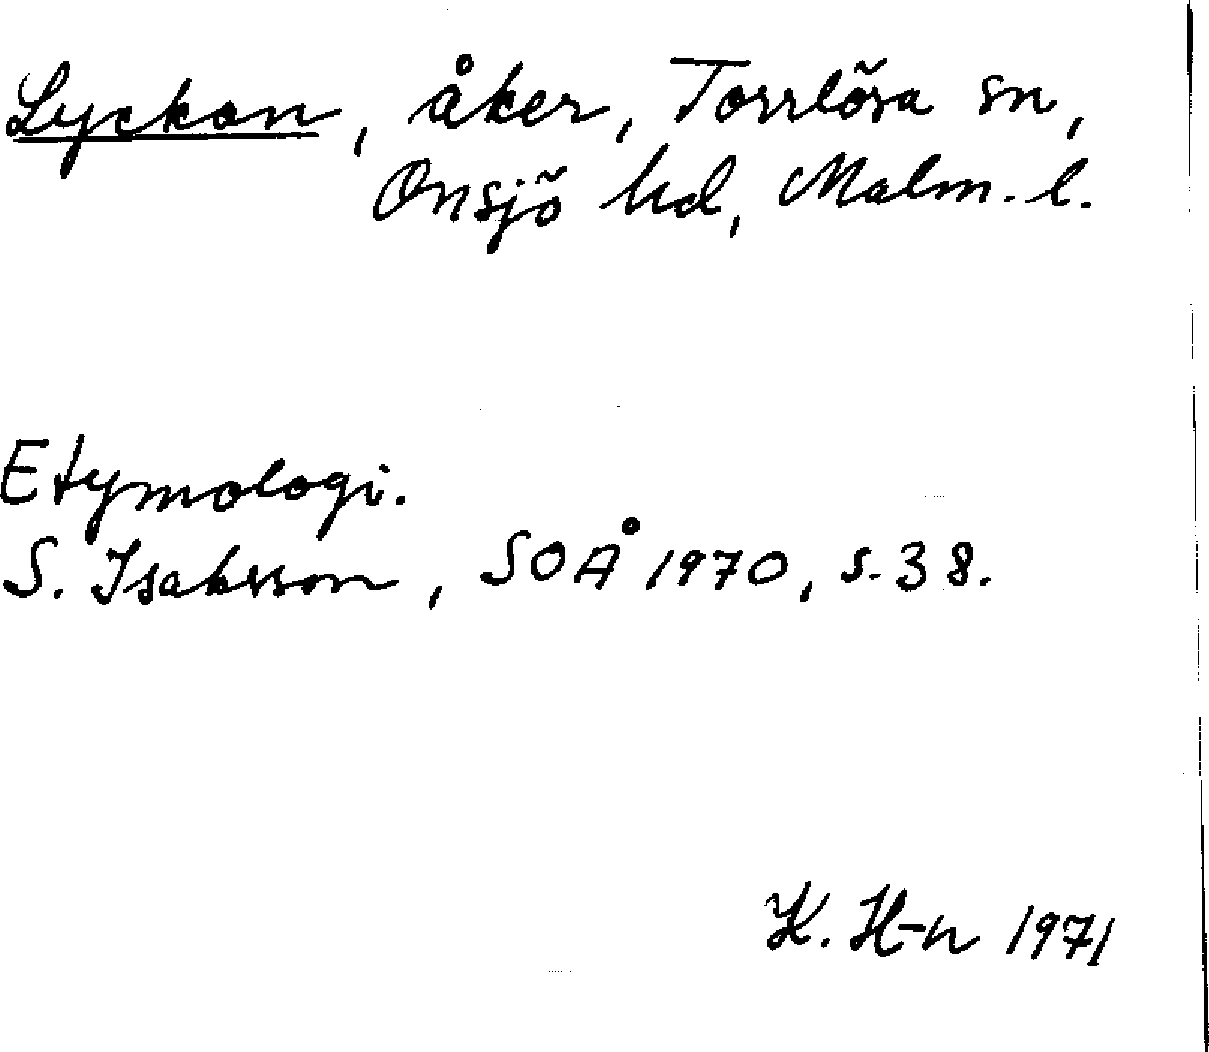 Lyckon, åker, Torrlösa sn,
Onsjö hd, Malm. l.
Etymologi.
S. Isaksson, SOÅ 1970, s. 38.
K. H-n 1971